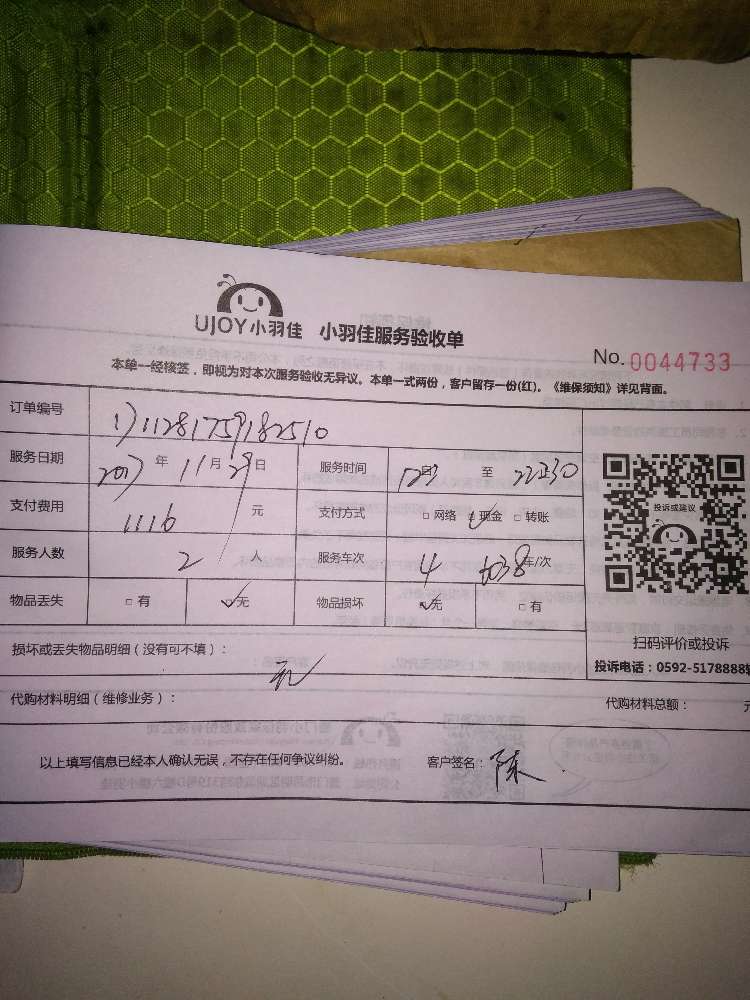 UJOY小羽佳 小羽佳服务验收单
No. 0044733
本单一经核签，即视为对本次服务验收无异议。本单一式两份，客户留存一份(红)。《维保须知》详见背面。
订单编号
服务日期 2017 年 11 月 29 日 服务时间 至
支付费用 1116 元 支付方式 □ 网络 ☑ 现金 □ 转账
服务人数 2 人 服务车次 4 车/次
物品丢失 □ 有 ☑ 无 物品损坏 ☑ 无 □ 有
投诉或建议
扫码评价或投诉
投诉电话：0592-5178888
损坏或丢失物品明细（没有可不填）：
无
代购材料明细（维修业务）： 代购材料总额：
以上填写信息已经本人确认无误，不存在任何争议纠纷。 客户签名：陈